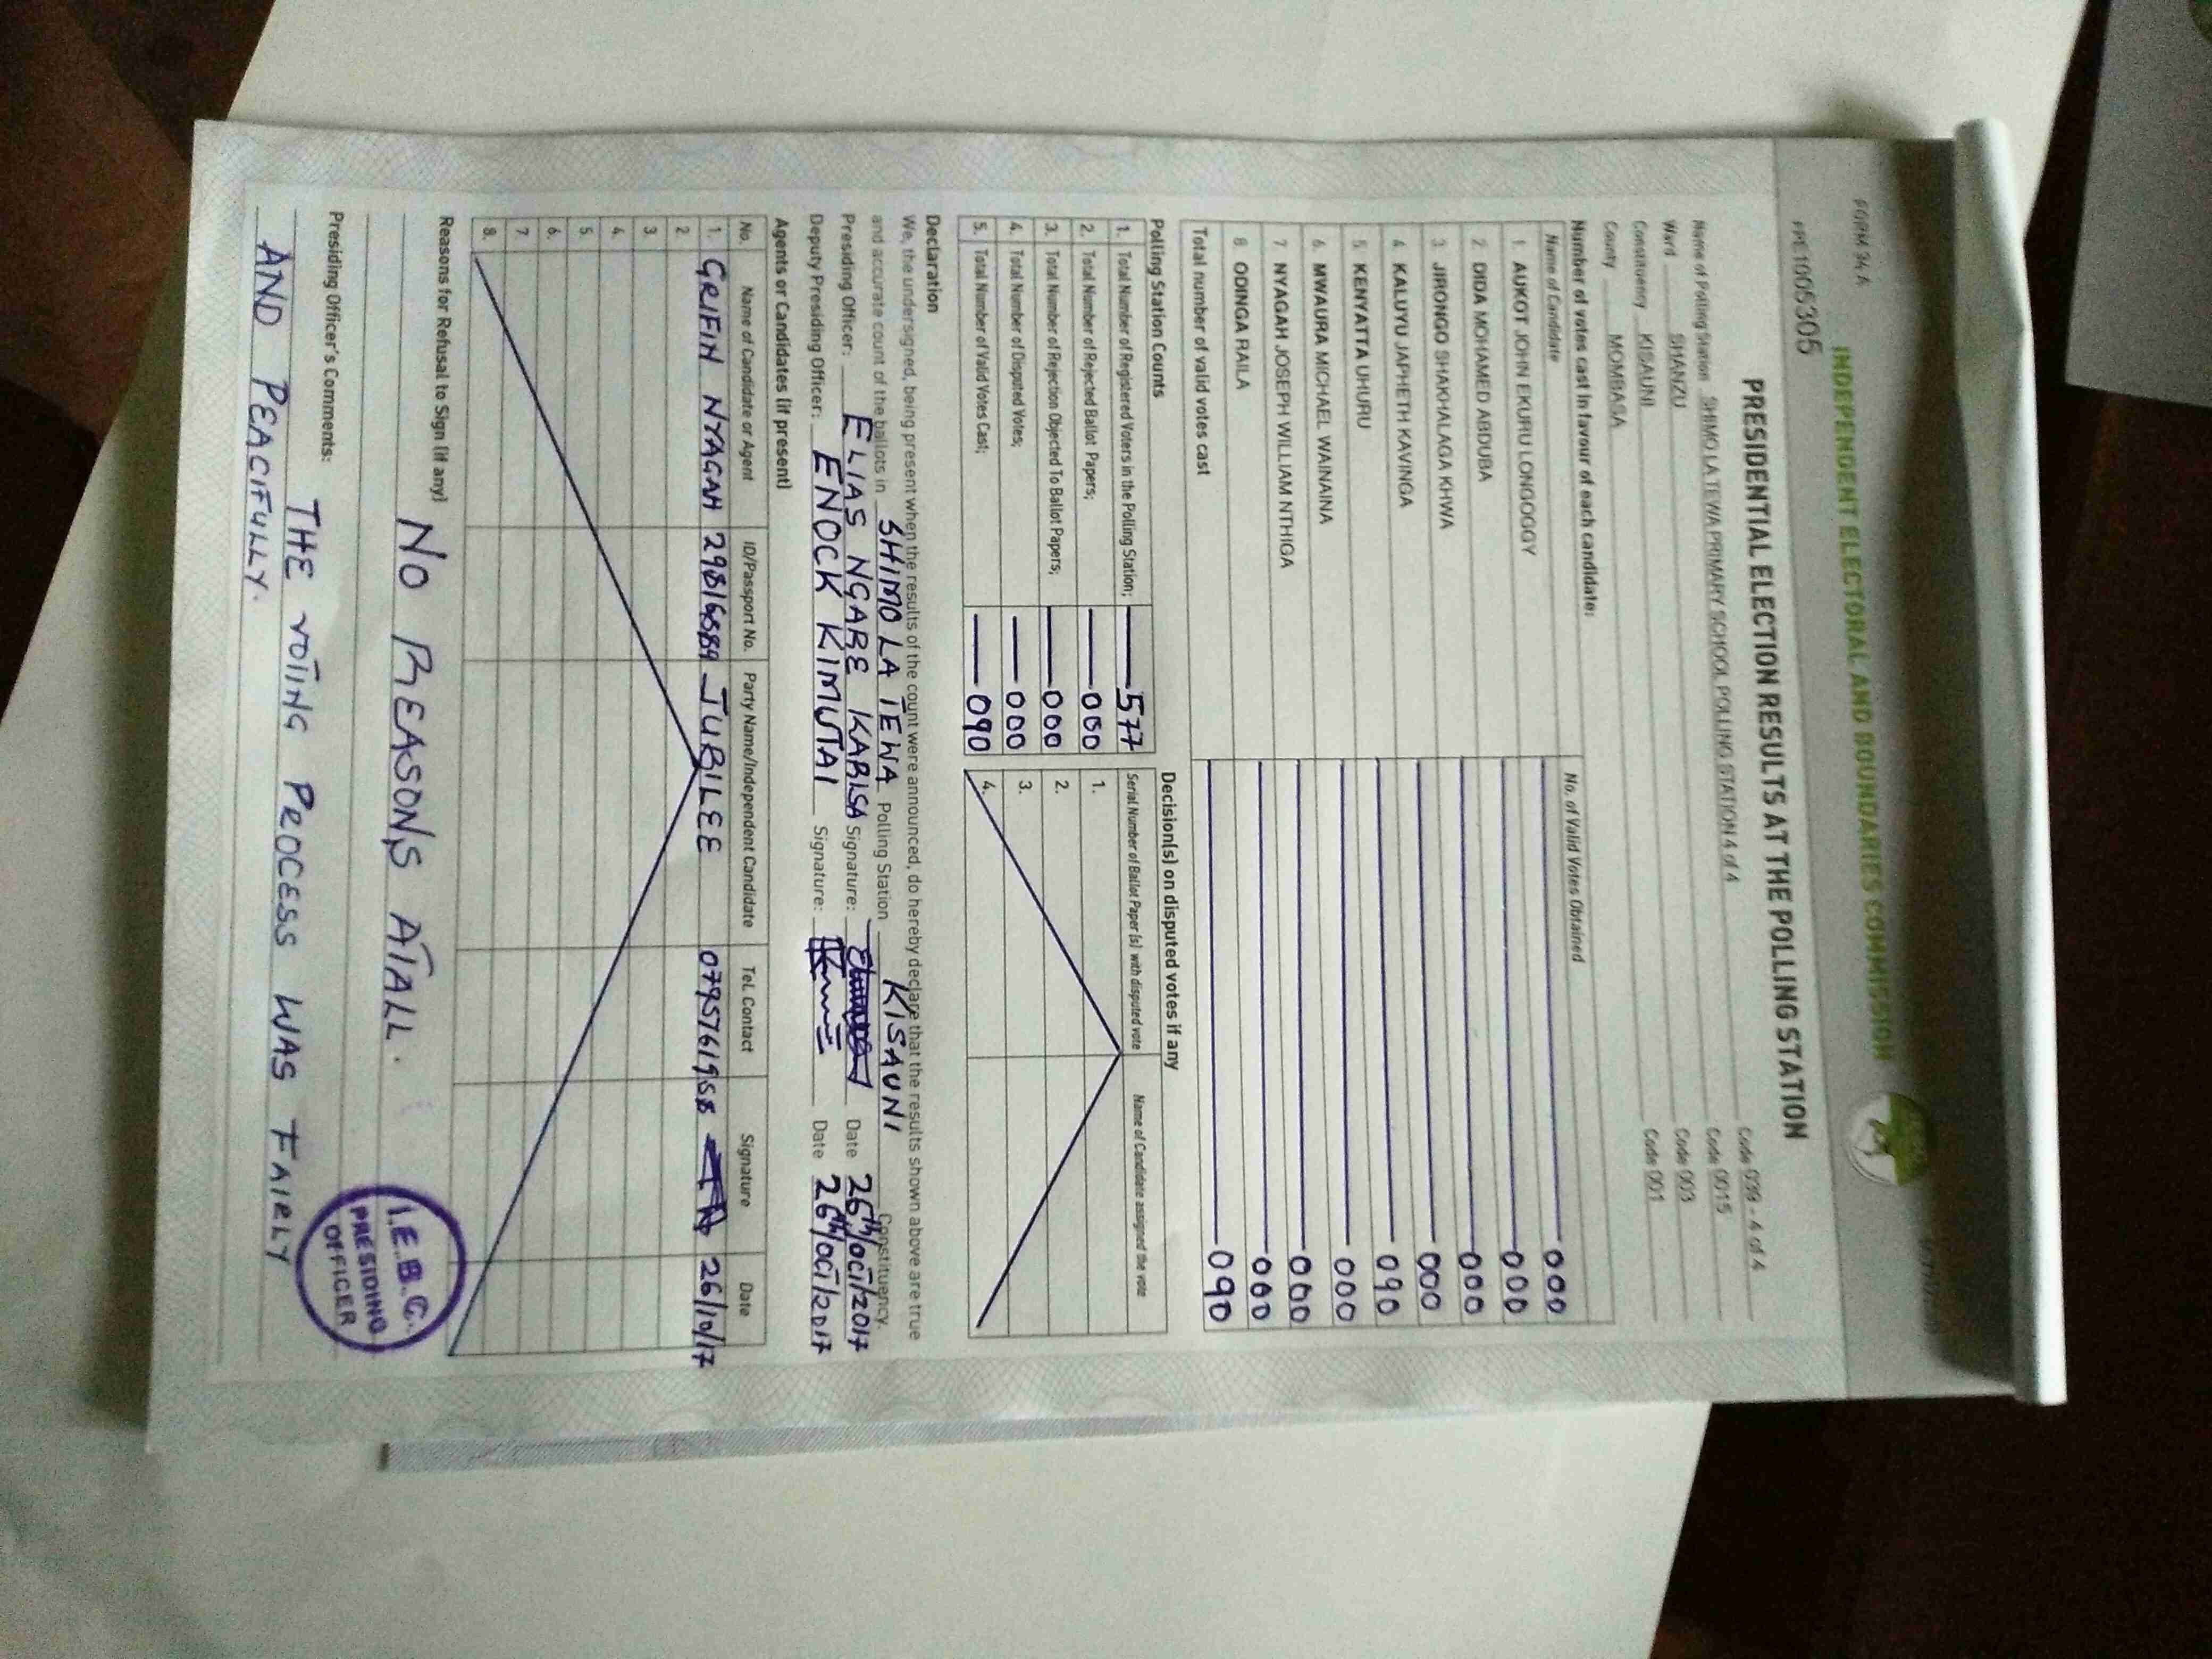 FORM 34A
INDEPENDENT ELECTORAL AND BOUNDARIES COMMISSION
PPE1005305
PRESIDENTIAL ELECTION RESULTS AT THE POLLING STATION
Name of Polling Station SHIMO LA TEWA PRIMARY SCHOOL POLLING STATION 4 of 4 Code 039 - 4 of 4
Ward SHANZU Code 0015
Constituency KISAUNI Code 003
County MOMBASA Code 001
Number of votes cast in favour of each candidate:
Name of Candidate No. of Valid Votes Obtained
1. AUKOT JOHN EKURU LONGOGGY 000
2. DIDA MOHAMED ABDUBA 000
3. JIRONGO SHAKHALAGA KHWA 000
4. KALUYU JAPHETH KAVINGA 000
5. KENYATTA UHURU 090
6. MWAURA MICHAEL WAINAINA 000
7. NYAGAH JOSEPH WILLIAM NTHIGA 000
8. ODINGA RAILA 000
Total number of valid votes cast 090
Polling Station Counts
1. Total Number of Registered Voters in the Polling Station; 577
2. Total Number of Rejected Ballot Papers; 000
3. Total Number of Rejection Objected To Ballot Papers; 000
4. Total Number of Disputed Votes; 000
5. Total Number of Valid Votes Cast; 090
Decision(s) on disputed votes if any
Serial Number of Ballot Paper (s) with disputed vote Name of Candidate assigned the vote
1.
2.
3.
4.
Declaration
We, the undersigned, being present when the results of the count were announced, do hereby declare that the results shown above are true
and accurate count of the ballots in SHIMO LA TEWA Polling Station KISAUNI Constituency.
Presiding Officer: ELIAS NGARE KABISA Signature: Date 26th/OCT/2017
Deputy Presiding Officer: ENOCK KIMUTAI Signature: Date 26th/OCT/2017
Agents or Candidates (if present)
No. Name of Candidate or Agent ID/Passport No. Party Name/Independent Candidate Tel. Contact Signature Date
1. GRIFIN NYAGAH JUBILEE 0795761958 26/10/17
2.
3.
4.
5.
6.
7.
8.
Reasons for Refusal to Sign (if any)
NO REASONS ATALL.
Presiding Officer's Comments:
THE VOTING PROCESS WAS FAIRLY
AND PEACIFULLY.
I.E.B.C.
PRESIDING
OFFICER